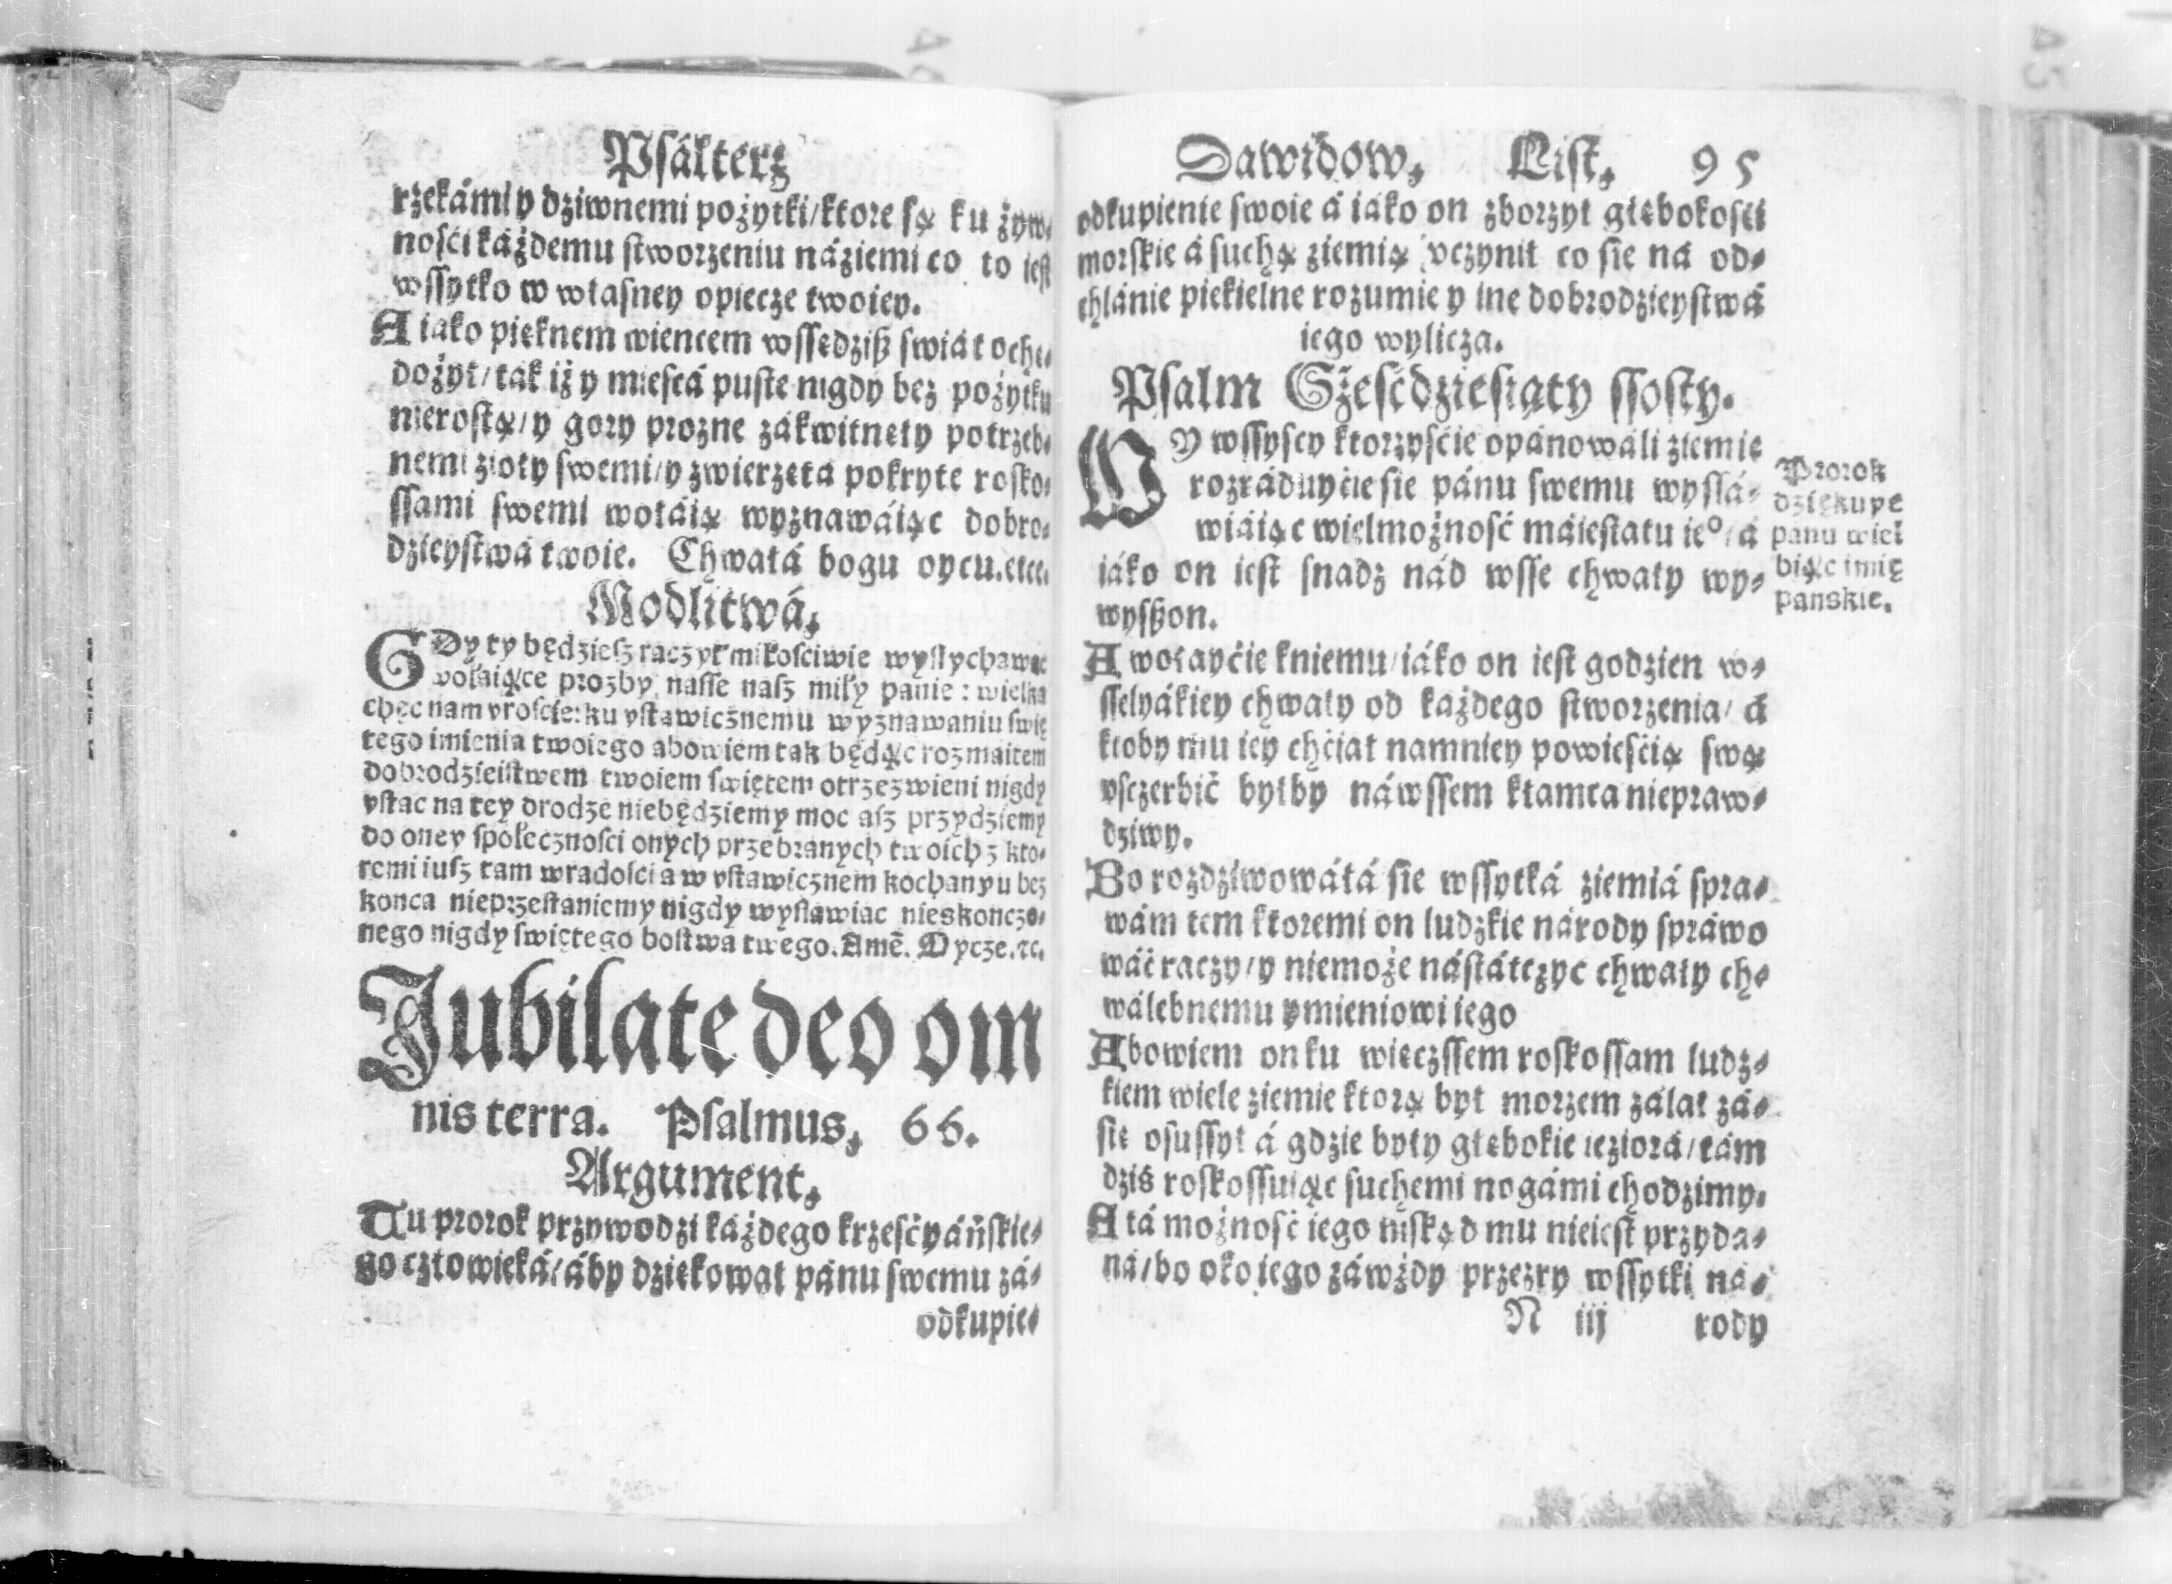 Psálterz
rzekámi y dziwnemi pożytki/ktore są ku żyw⸗
nośći káżdemu stworzeniu náziemi co to iest
wssytko w własney opiecze twoiey.
A iáko pięknem wiencem wssędziß swiát ochę⸗
dożył/ták iż y miescá puste nigdy bez pożytku
nierostą/y gory prozne zákwitnęły potrzeb⸗
nemi zioły swemi/y zwierzętá pokryte rosko⸗
ssami swemi wołáią wyznawáiąc dobro⸗
dzieystwá twoie. Chwałá bogu oycu.etcć.
Modlitwá.
GDy ty będziesz raczył miłosciwie wysłychawac
wołaiące prozby nasse nasz miły panie: wielka
chęc nam vroscie: ku vstawicznemu wyznawaniu swię
tego imienia twoiego abowiem tak będąc rozmaitem
dobrodzieistwem twoiem swiętem otrzezwieni nigdy
vstac na tey drodze niebędziemy moc asz przydziemy
do oney społecznosci onych przebranych twoich z kto⸗
remi iusz tam wradosci a w vstawicznem kochanyu bez
konca nieprzestaniemy nigdy wysławiac nieskonczo⸗
nego nigdy swiętego bostwa twego. Amē. Oycze.ꝛc.
Jubilate deo om
nis terra. Psalmus, 66.
Argument.
Tu prorok przywodzi káżdego krzesćyáńskie⸗
go człowieká/áby dziękował pánu swemu zá⸗
odkupie⸗
Dawidow. List. 95
odkupienie swoie á iáko on zborzył głębokosći
morskie á suchą ziemią vczynił co sie ná od⸗
chłánie piekielne rozumie y ine dobrodzieystwá
iego wylicza.
Psalm Sześćdziesiąty ssosty.
WY wssyscy ktorzyśćie opánowáli ziemię
rozráduyćie sie pánu swemu wysłá⸗
wiáiąc wielmożność máiestatu ieº/á
iáko on iest snadz nád wsse chwały wy⸗
wyśßon.
A wołayćie kniemu/iáko on iest godzien w⸗
sselyákiey chwały od każdego stworzenia/ á
ktoby mu iey chćiał namniey powieśćią swą
vsczerbić byłby náwssem kłamca niepraw⸗
dziwy.
Bo rozdziwowáłá sie wssytká ziemiá spra⸗
wám tem ktoremi on ludzkie národy spráwo
wáć raczy/y niemoże nástátczyc chwały ch⸗
wálebnemu ymieniowi iego
Abowiem on ku więczssem roskossam ludz⸗
kiem wiele ziemie ktorą był morzem zálał zá⸗
się osussył á gdzie były głębokie ieziorá/tám
dzis roskossuiąc suchemi nogámi chodzimy.
A tá możność iego niskąd mu nieiest przyda⸗
ná/bo oko iego záwżdy przezry wssytki ná⸗
N iij rody
Prorok
dziękuye
panu wiel
biąc imię
panskie.